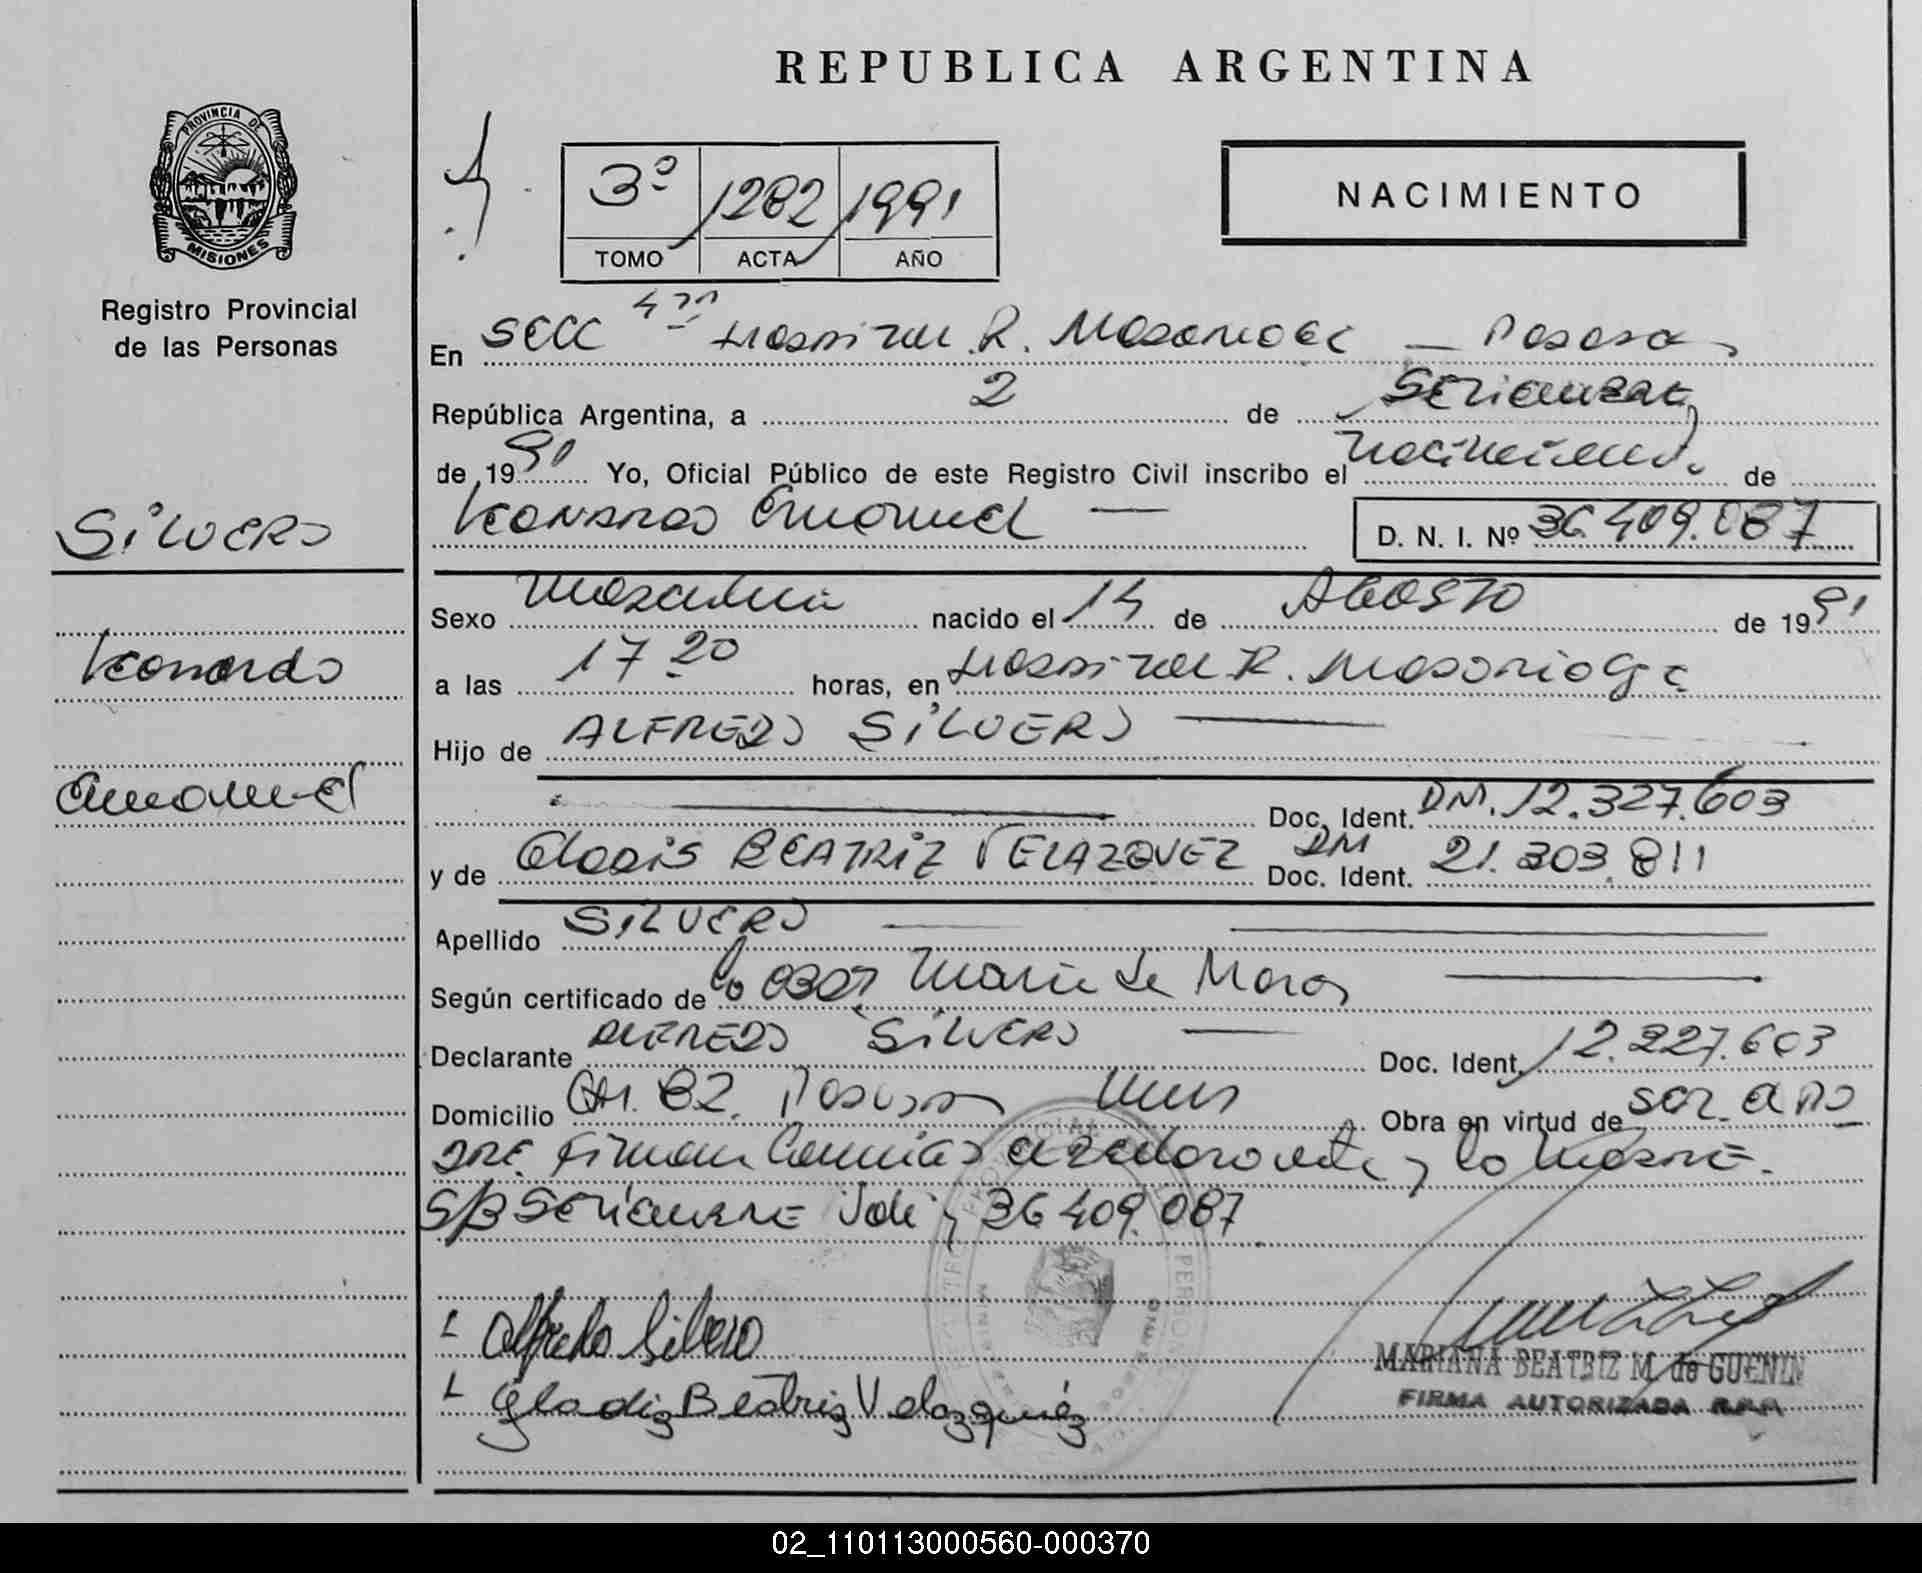 REPUBLICA ARGENTINA
PROVINCIA DE
MISIONES
Registro Provincial
de las Personas
3º 1282 1991
TOMO ACTA AÑO
NACIMIENTO
En Secc 4ta Hospital R. Madariaga — Posadas
República Argentina, a 2 de Setiembre
de 1991 Yo, Oficial Público de este Registro Civil inscribo el nacimiento de
SILVERO
Leonardo Emanuel —
D. N. I. Nº 36.409.087
Sexo masculino nacido el 14 de AGOSTO de 1991
Leonardo
a las 17 20 horas, en Hospital R. Madariaga
Hijo de ALFREDO SILVERO —
Emanuel
Doc. Ident. DM. 12.327.603
y de Gladis BEATRIZ VELAZQUEZ Doc. Ident. DM 21.303.811
Apellido SILVERO
Según certificado de la obst. Maria de
Declarante ALFREDO SILVERO — Doc. Ident. 12.327.603
Domicilio CH. 82. Posadas Mnes Obra en virtud de ser el pa
dre. Firman conmigo el declarante y la madre.
S/B SETIEMBRE Vale y 36 409.087
Alfredo Silvero
Gladiz Beatriz Velazquez
MARIANA BEATRIZ M. de GUENIN
FIRMA AUTORIZADA R.P.P.
02_110113000560-000370